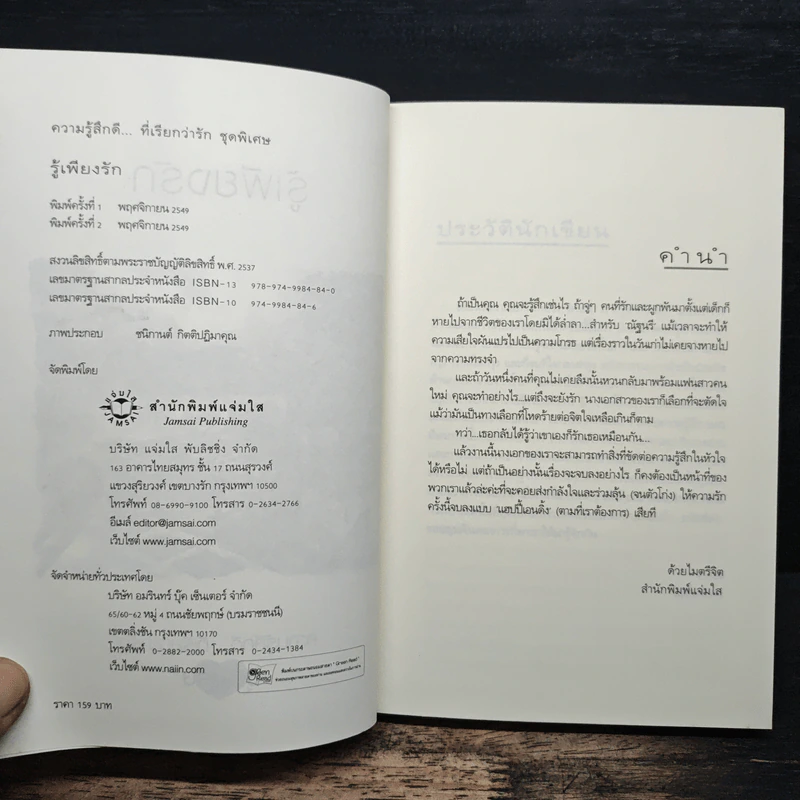 ความรู้สึกดี... ที่เรียกว่ารัก ชุดพิเศษ
รู้เพียงรัก
พิมพ์ครั้งที่ 1 พฤศจิกายน 2549
พิมพ์ครั้งที่ 2 พฤศจิกายน 2549
สงวนลิขสิทธิ์ตามพระราชบัญญัติลิขสิทธิ์ พ.ศ. 2537
เลขมาตรฐานสากลประจำหนังสือ ISBN-13 978-974-9984-84-0
เลขมาตรฐานสากลประจำหนังสือ ISBN-10 974-9984-84-6
ภาพประกอบ ชนิกานต์ กิตติปฏิมาคุณ
จัดพิมพ์โดย
สำนักพิมพ์แจ่มใส
Jamsai Publishing
บริษัท แจ่มใส พับลิชชิ่ง จำกัด
163 อาคารไทยสมุทร ชั้น 17 ถนนสุรวงศ์
แขวงสุริยวงศ์ เขตบางรัก กรุงเทพฯ 10500
โทรศัพท์ 08-6990-9100 โทรสาร 0-2634-2766
อีเมล์ editor@jamsai.com
เว็บไซต์ www.jamsai.com
จัดจำหน่ายทั่วประเทศโดย
บริษัท อมรินทร์ บุ๊ค เซ็นเตอร์ จำกัด
65/60-62 หมู่ 4 ถนนชัยพฤกษ์ (บรมราชชนนี)
เขตตลิ่งชัน กรุงเทพฯ 10170
โทรศัพท์ 0-2882-2000 โทรสาร 0-2434-1384
เว็บไซต์ www.naiin.com
Green Read
ราคา 159 บาท
ประวัตินักเขียน
คำนำ
ถ้าเป็นคุณ คุณจะรู้สึกเช่นไร ถ้าจู่ๆ คนที่รักและผูกพันมาตั้งแต่เด็กก็
หายไปจากชีวิตของเราโดยมิได้ล่ำลา...สำหรับ 'ณัฐนรี' แม้เวลาจะทำให้
ความเสียใจผันแปรไปเป็นความโกรธ แต่เรื่องราวในวันเก่าไม่เคยจางหายไป
จากความทรงจำ
และถ้าวันหนึ่งคนที่คุณไม่เคยลืมนั้นหวนกลับมาพร้อมแฟนสาวคน
ใหม่ คุณจะทำอย่างไร...แต่ถึงจะยังรัก นางเอกสาวของเราก็เลือกที่จะตัดใจ
แม้ว่ามันเป็นทางเลือกที่โหดร้ายต่อจิตใจเหลือเกินก็ตาม
ทว่า...เธอกลับได้รู้ว่าเขาเองก็รักเธอเหมือนกัน...
แล้วงานนี้นางเอกของเราจะสามารถทำสิ่งที่ขัดต่อความรู้สึกในหัวใจ
ได้หรือไม่ แต่ถ้าเป็นอย่างนั้นเรื่องจะจบลงอย่างไร ก็คงต้องเป็นหน้าที่ของ
พวกเราแล้วล่ะค่ะที่จะคอยส่งกำลังใจและร่วมลุ้น (จนตัวโก่ง) ให้ความรัก
ครั้งนี้จบลงแบบ 'แฮปปี้เอนดิ้ง' (ตามที่เราต้องการ) เสียที
ด้วยไมตรีจิต
สำนักพิมพ์แจ่มใส